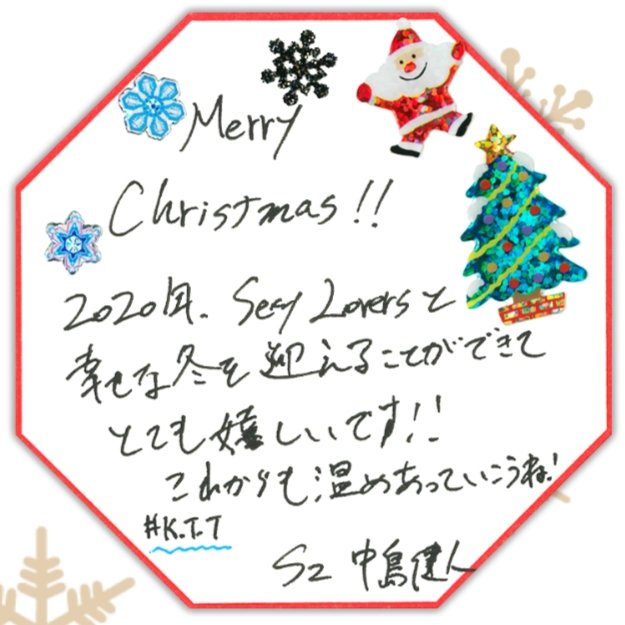 Merry
Christmas!!
2020年、Sexy Loversと
幸せな冬を迎えることができて
とても嬉しいです!!
これからも温めあっていこうね!
#K.T.T
S2 中島健人